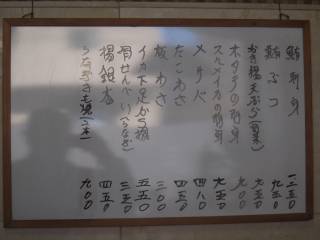 鮪刺身 一二五〇
鮪ぶつ 九五〇
かき揚天ぷら(育菜) 七五〇
ホタテの刺身 九〇〇
スルメイカの刺身 七五〇
メリ八 四八〇
たこわさ 四五〇
板わさ 三〇〇
イカ下足から揚 五五〇
骨せんべい(うなぎ) 三五〇
揚銀杏 四五〇
うなぎきも焼(二本) 九〇〇